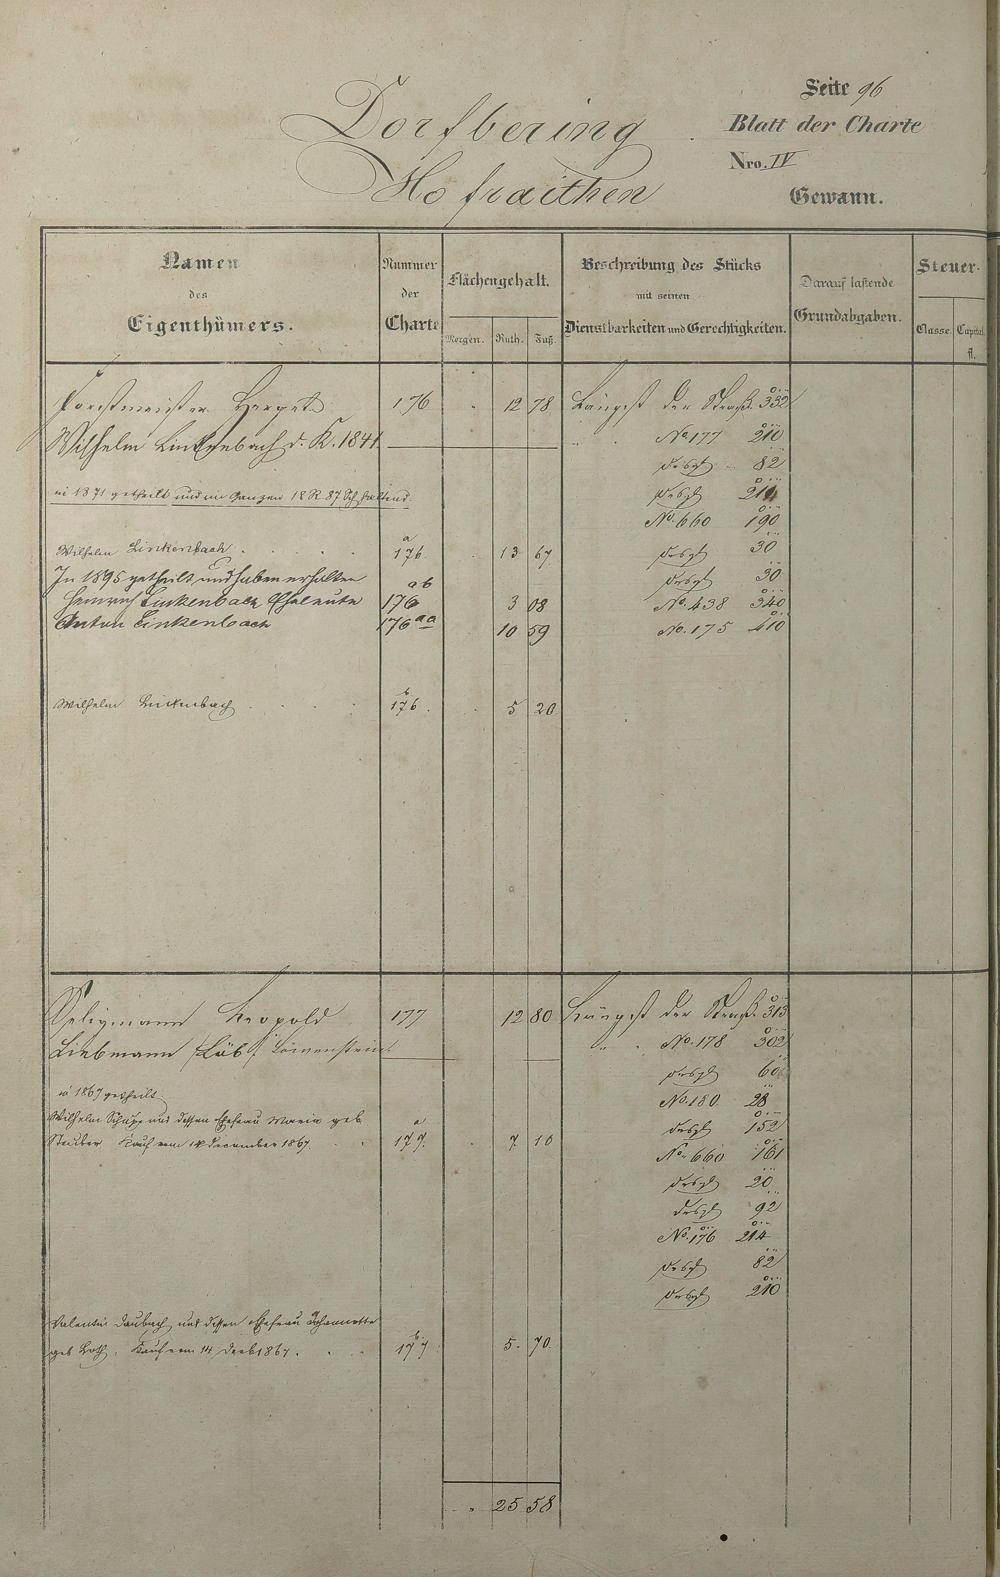 Seite 96
Dorfbering
Blatt der Charte
Nro. IV
Hofraithen
Gewann.
Namen
des
Eigenthümers.
Nummer
der
Charte
Flächengehalt.
Morgen. Ruth. Fuß.
Beschreibung des Stücks
mit seinen
Dienstbarkeiten und Gerechtigkeiten.
Darauf lastende
Grundabgaben.
Steuer-
Classe. Capital
fl.
Forstmeister Herget 176 12 78 Längst der Straße 352
Wilhelm Linkenbach d. K. 1841 No. 177 210
desgl 82
in 1871 getheilt und im Ganzen 18 R. 87 Sch haltend desgl 214
No. 660 190
Wilhelm Linkenbach 176 a 13 67 desgl 30
In 1895 getheilt und haben erhalten desgl 30
Heinrich Linkenbach Eheleute 176 ab 3 08 No. 438 340
Anton Linkenbach 176 aa 10 59 No. 175 410
Wilhelm Linkenbach 176 b 5 20
Seligmann Leopold 177 12 80 Längst der Straße 313
Liebmann Löb Löwenstein No. 178 302
desgl 60
in 1867 getheilt No. 180 28
Wilhelm Schupp und dessen Ehefrau Maria geb desgl 152
Steuber Kauf vom 14 December 1867. 177 a 7 10 No. 660 161
desgl 20
desgl 92
No. 176 214
desgl 82
desgl 210
Valentin Daubach und dessen Ehefrau Johannette
geb Roth. Kauf vom 14 Decb 1867. 177 b 5. 70.
25 58